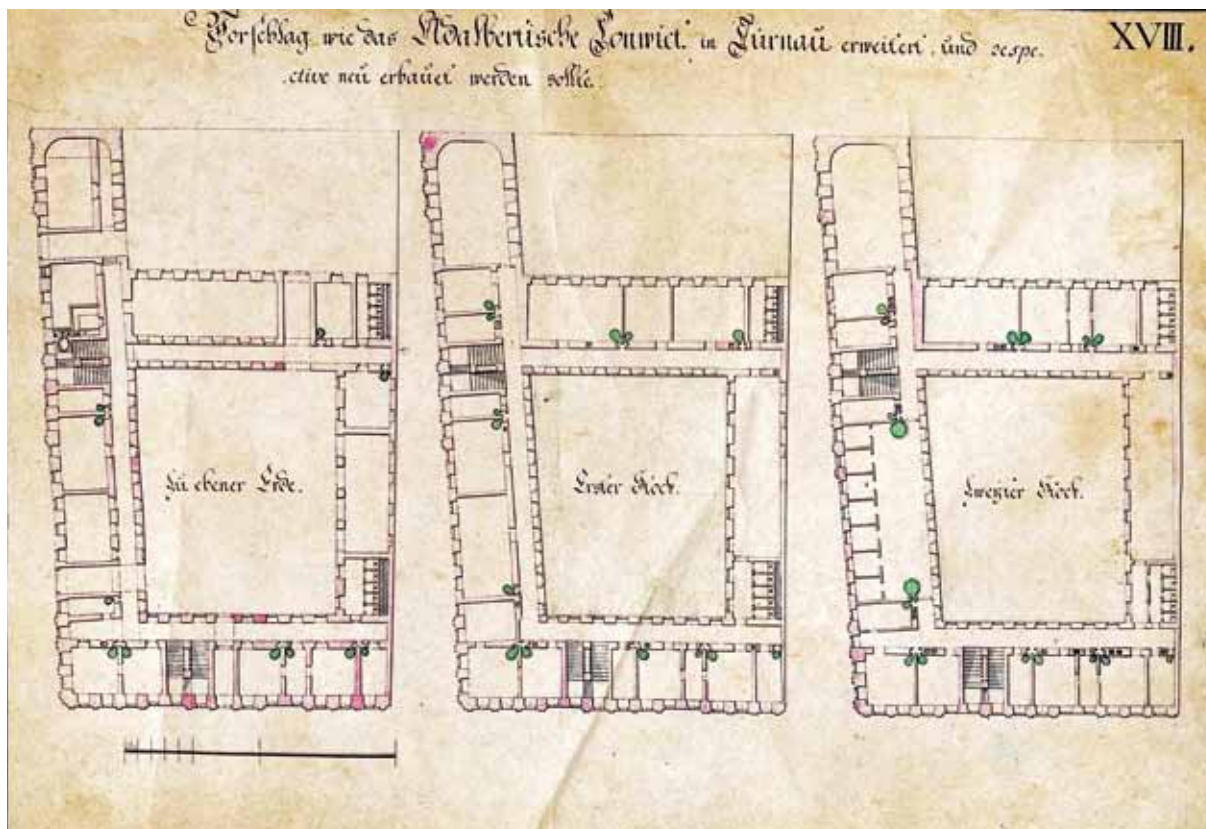 Vorschlag wie das Adalbertische Convict in Türnau erweitert, und respe-
ctive neü erbauet werden sollte.
XVIII.
Zu ebener Erde.
Erster Stock.
Zweyter Stock.